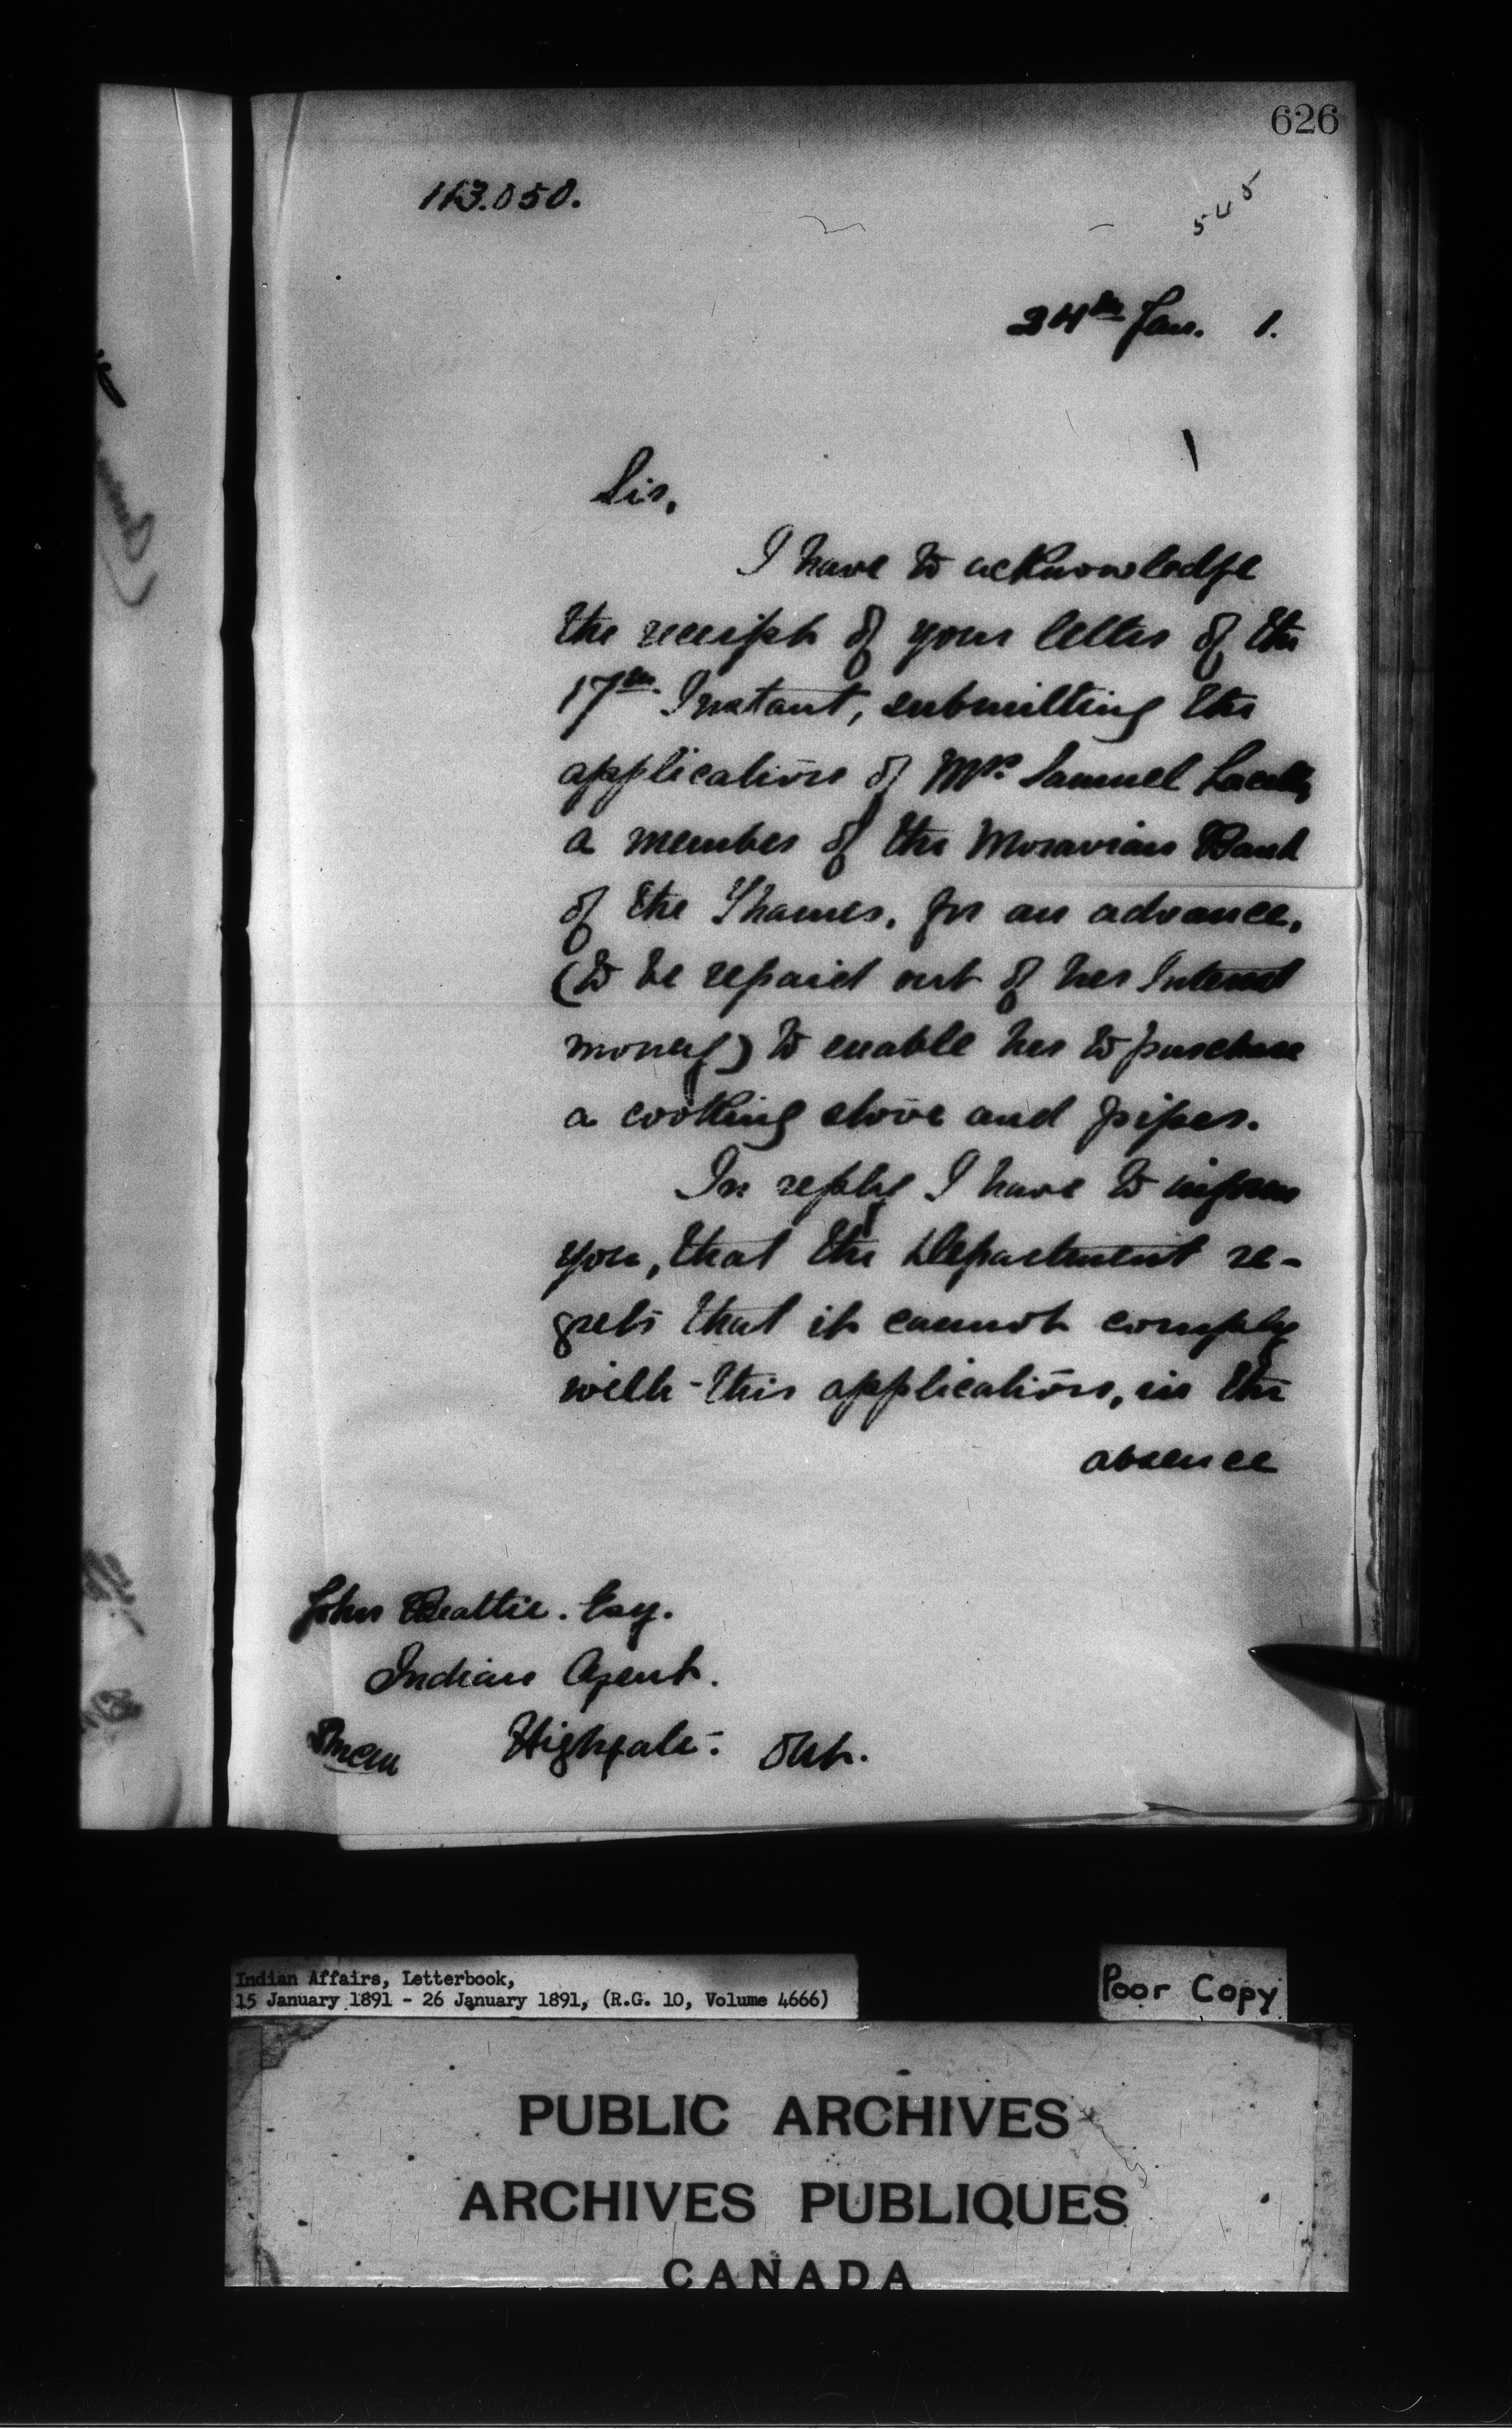 626
113.050.
24th Jan. 1.
Sir,
I have to acknowledge
the receipt of your letter of the
17th Instant, submitting the
application of Mrs Samuel
a member of the Moravian Band
of the Thames, for an advance,
(to be repaid out of her Interest
money) to enable her to purchase
a cooking stove and pipes.
In reply I have to inform
you, that the Department re-
grets that it cannot comply
with this application, in the
absence
John Beattie. Esq.
Indian Agent.
Highgate. Ont.
Indian Affairs, Letterbook,
15 January 1891 - 26 January 1891, (R.G. 10, Volume 4666)
Poor Copy
PUBLIC ARCHIVES
ARCHIVES PUBLIQUES
CANADA